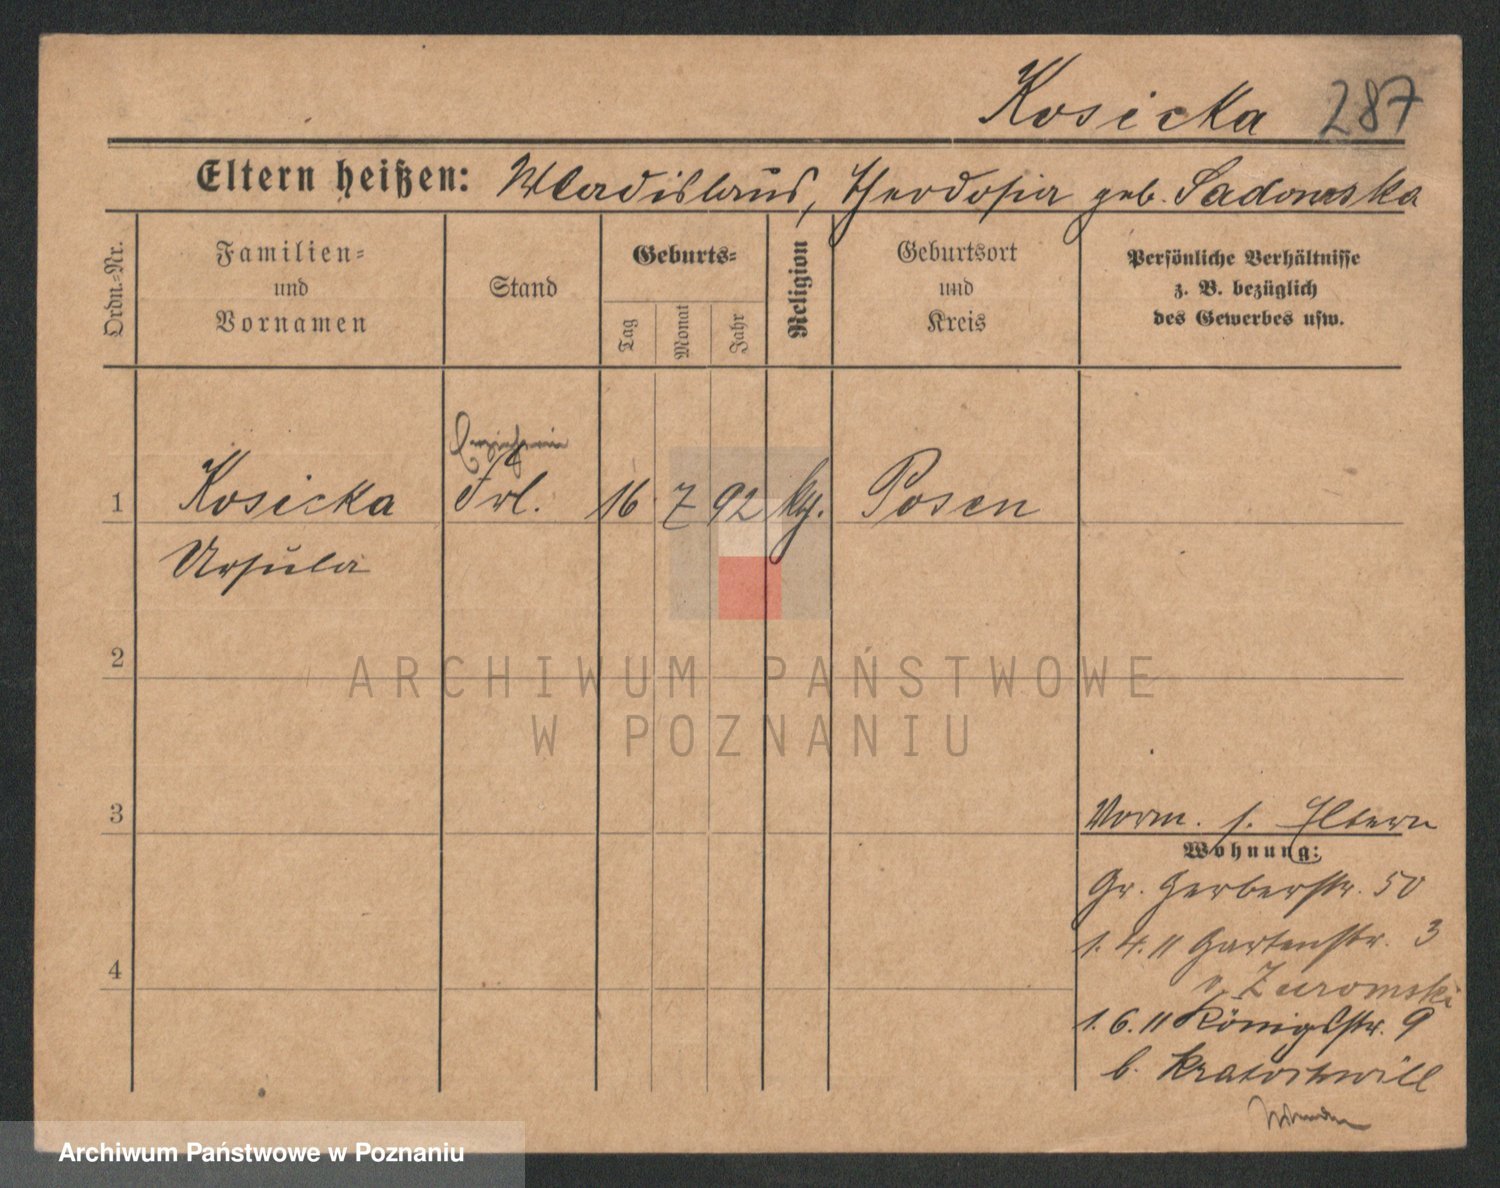 Kosicka 287
Eltern heißen: Wladislaus, Theodosia geb. Sadowska
Ordn.-Nr.
Familien-
und
Vornamen
Stand
Geburts-
Tag
Monat
Jahr
Religion
Geburtsort
und
Kreis
Persönliche Verhältnisse
z. B. bezüglich
des Gewerbes usw.
Erzieherin
1 Kosicka Frl. 16 7 92 kth. Posen
Ursula
2
ARCHIWUM PAŃSTWOWE
W POZNANIU
3
Vorm. s. Eltern
Wohnung:
Gr. Gerberstr. 50
1. 4. 11 Gartenstr. 3
4
v. Zuromski
1. 6. 11 Königstr. 9
b. Kratochwill
Archiwum Państwowe w Poznaniu